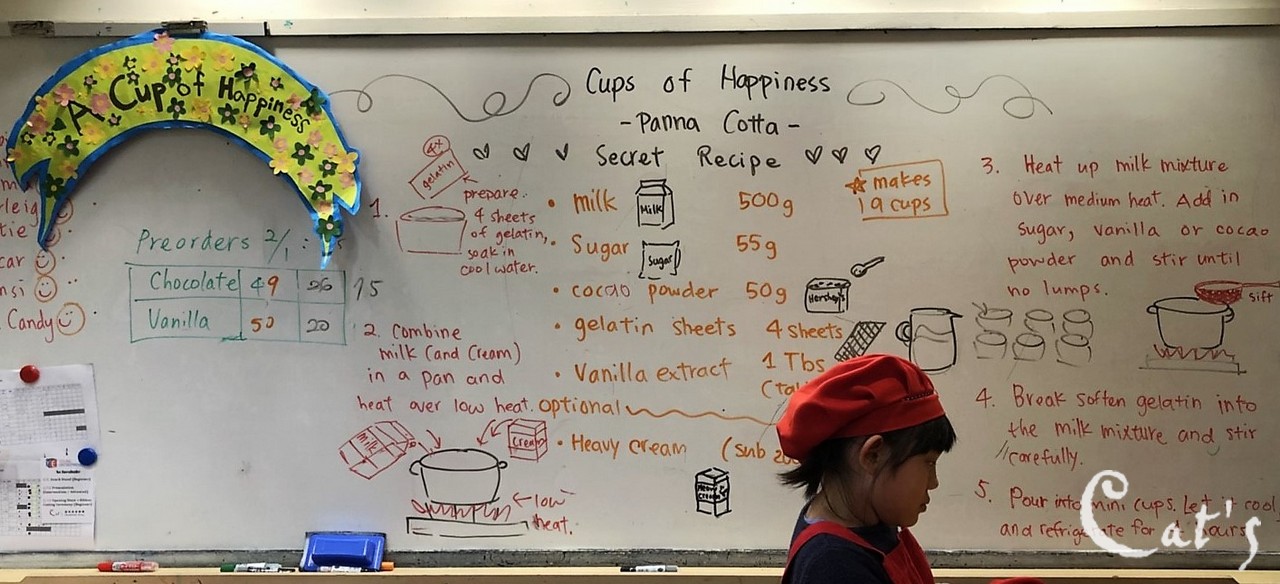 A Cup of Happiness
Cups of Happiness
- Panna Cotta -
Secret Recipe
Preorders 2/1 :
Chocolate 49 26 75
Vanilla 50 20
Candy
1.
4x
gelatin
prepare
4 sheets
of gelatin,
soak in
cool water.
2. Combine
milk (and Cream)
in a pan and
heat over low heat.
Milk
Cream
low
heat.
• milk Milk 500g
makes
19 cups
• Sugar Sugar 55g
• cocao powder 50g Hershey's
• gelatin sheets 4 sheets
• Vanilla extract 1 Tbs
optional
• Heavy cream (sub
3. Heat up milk mixture
over medium heat. Add in
sugar, vanilla or cocao
powder and stir until
no lumps.
sift
4. Break soften gelatin into
the milk mixture and stir
carefully.
5. Pour into mini cups. Let it cool
and refrigerate for hours
Cat's